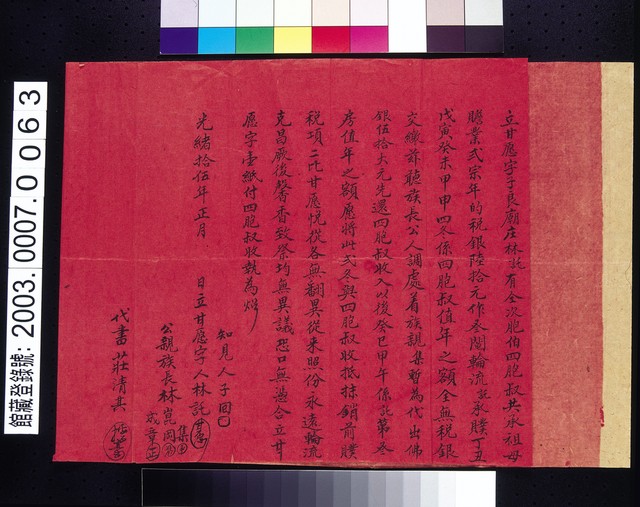 立甘愿字子良廟庄林託有全次胞伯四胞叔共承祖母
贍業弍宗年的税銀陸拾元作叁鬮輪流託承贌丁丑
戊寅癸未甲申四冬係四胞叔值年之額全無税銀
交繳荷聽族長公人調處着族親集暫為代出佛
銀伍拾大元先還四胞叔收入以後癸巳甲午係託第叁
房值年之額愿將此弍冬與四胞叔收抵抹銷前贌
税項二比甘愿悦從各無翻異從来照份永遠輪流
克昌厥後馨香致祭均無異議恐口無憑合立甘
愿字壹紙付四胞叔收執為炤
光緒拾伍年正月 日立甘愿字人林託
知見人子回
公親族長林崑岡
集
成章
代書莊清其
館藏登錄號: 2003.0007.0063